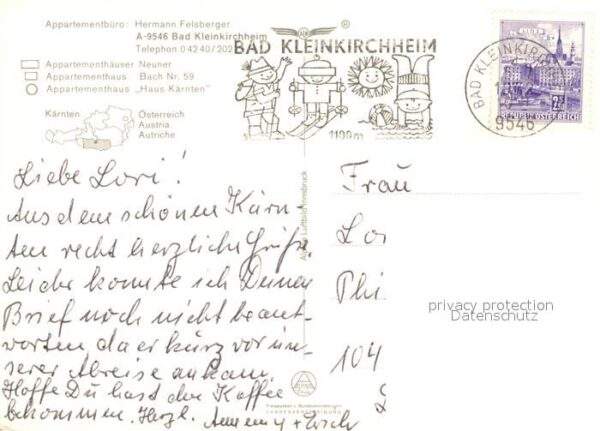 Appartementbüro: Hermann Felsberger
A-9546 Bad Kleinkirchheim
Telephon 0 42 40/202
Appartementhäuser Neuner
Appartementhaus Bach Nr. 59
Appartementhaus „Haus Kärnten"
Kärnten
Österreich
Austria
Autriche
BAD KLEINKIRCHHEIM
1100m
BAD KLEINKIRCH
9546
REPUBLIK ÖSTERREICH
Liebe Lori!
Aus dem schönen Kärn-
ten recht herzliche Grüße.
Leider konnte ich Deinen
Brief noch nicht beant-
worten da er kurz vor un-
serer Abreise ankam.
Hoffe Du hast den Kaffee
bekommen. Herzl. + Erich
Frau
Lo
Phi
104
privacy protection
Datenschutz